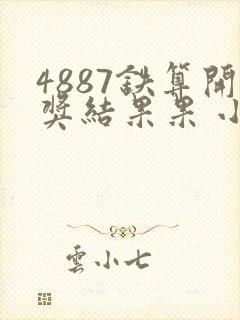 4887鉄算開
奖結果果小
雲小七